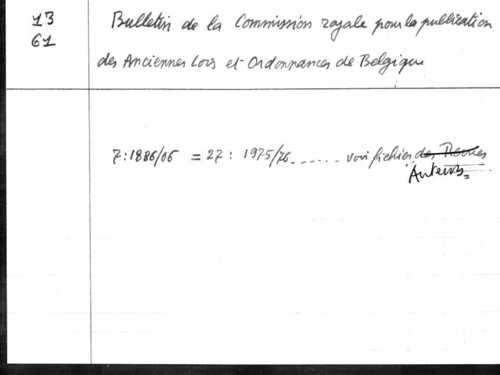 13
61
Bulletin de la Commission royale pour la publication
des Anciennes Lois et Ordonnances de Belgique
7:1886/06 = 27: 1975/76...... voir fichier des Revues
Auteurs